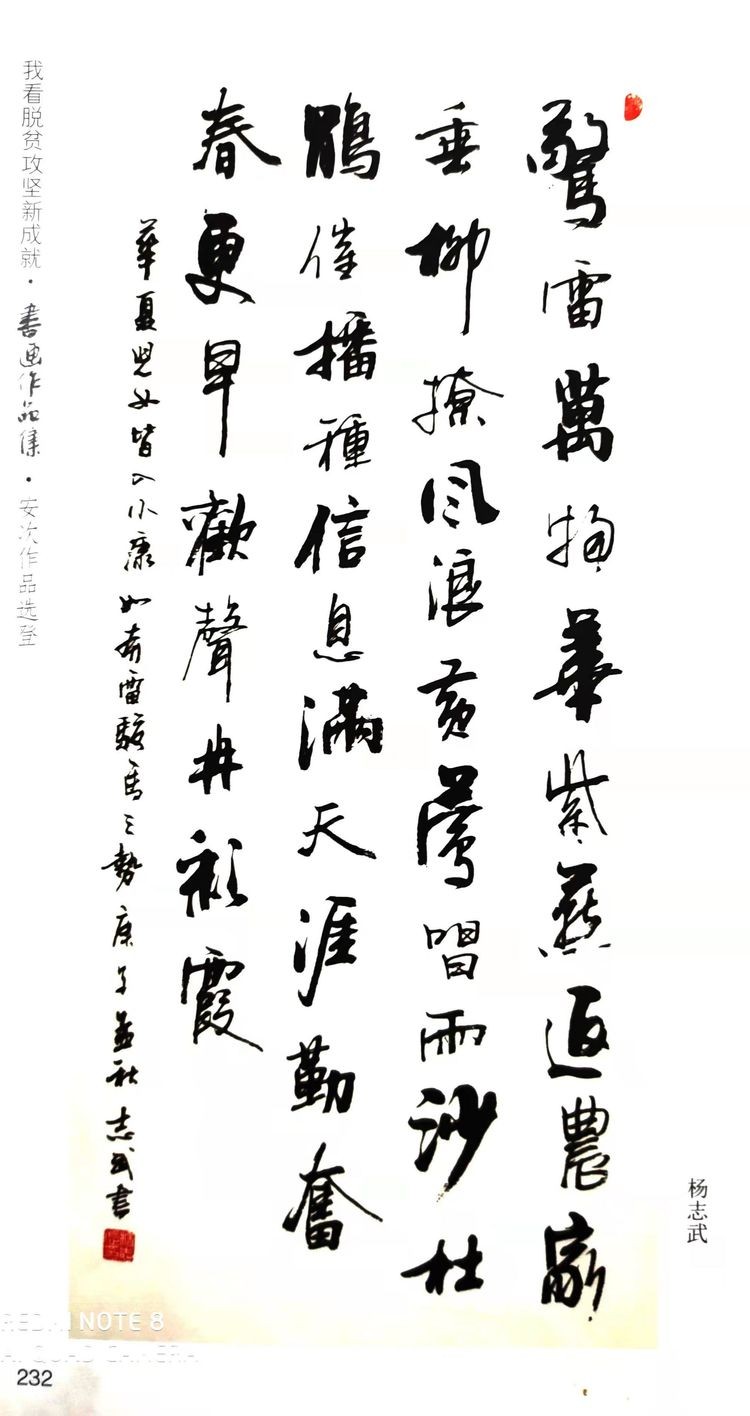 驚雷萬物華紫燕返農家
垂柳撩風浪黃鶯唱雨沙杜
鵑催播種信息滿天涯勤奮
春更早歡聲冉彩霞
華夏兒女皆入小康如奔雷駭馬之勢庚子孟秋志武書
杨志武
我看脱贫攻坚新成就·書画作品集·安次作品选登
232
REDMI NOTE 8
AI QUAD CAMERA